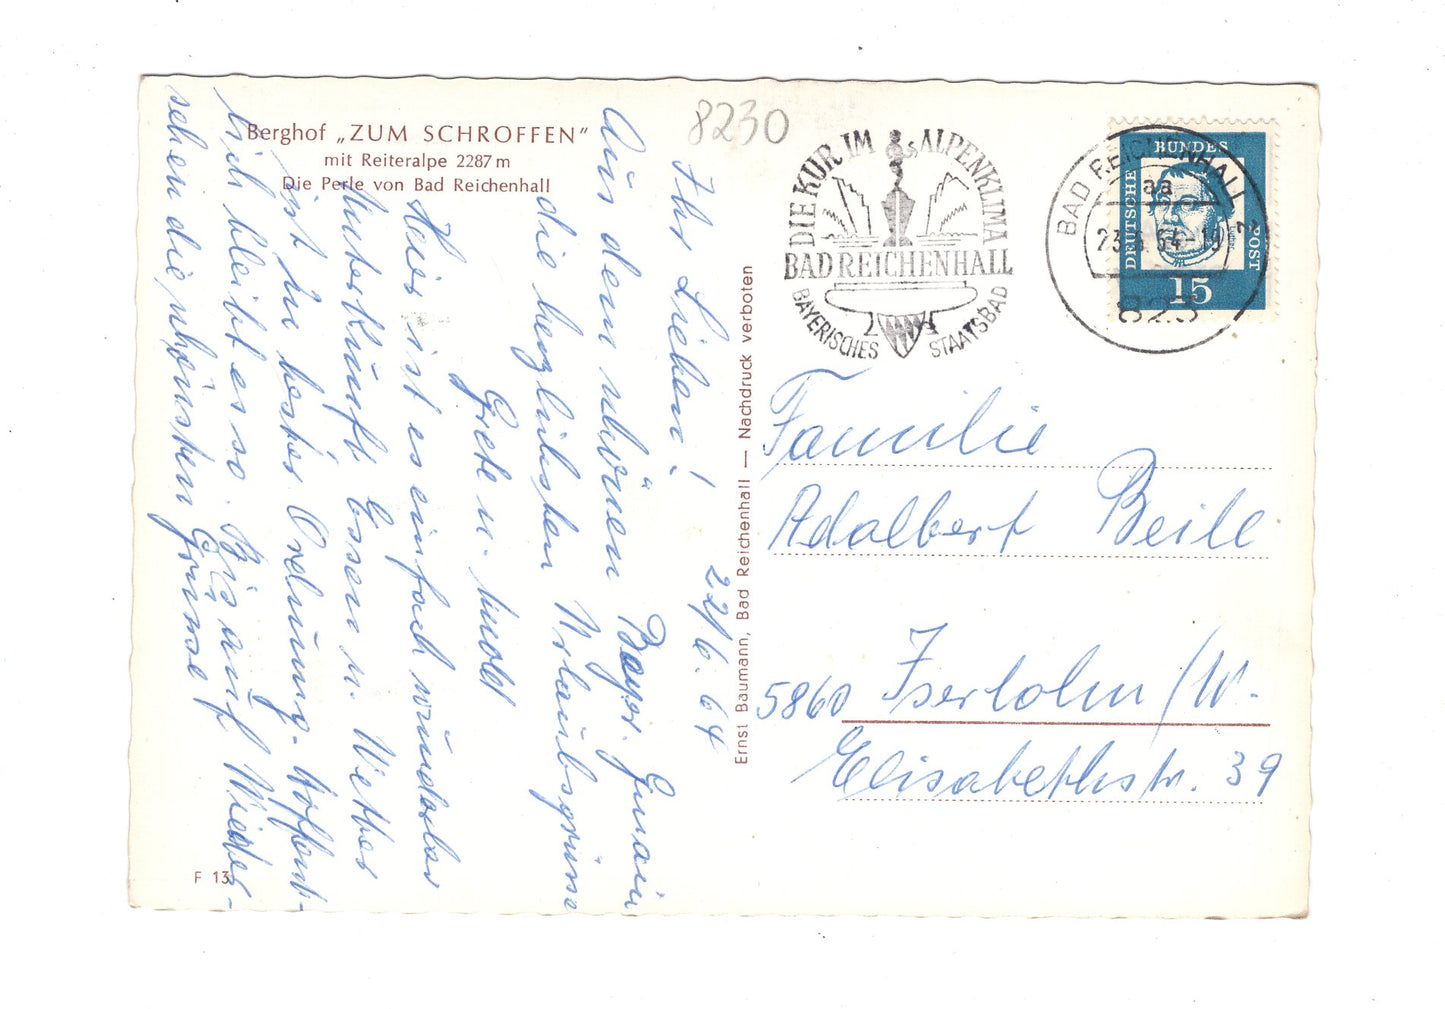 Berghof „ZUM SCHROFFEN”
mit Reiteralpe 2287 m
Die Perle von Bad Reichenhall
8230
DIE KUR IM ALPENKLIMA
BAD REICHENHALL
BAYERISCHES STAATSBAD
BAD REICHENHALL 2
aa
23.6.64-19
823
DEUTSCHE BUNDES POST
15
22/6.64
Ihr Lieben!
Aus dem schönen Bayr. Gmain
die herzlichsten Urlaubsgrüße
Grete u.
Hier ist es einfach wunderbar
Unterkunft Essen u. Wetter
ist in bester Ordnung. Hoffent-
lich bleibt es so. Bis auf Wieder-
sehen die schönsten Grüsse
Familie
Adalbert Beile
5860 Iserlohn/W.
Elisabethstr. 39
Ernst Baumann, Bad Reichenhall — Nachdruck verboten
F 13